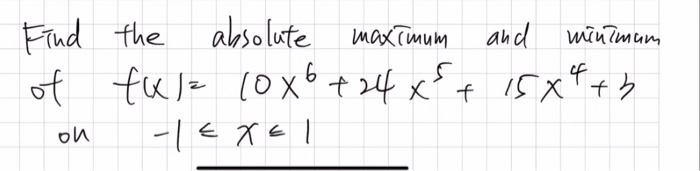 Find the absolute maximum and minimum
of f(x) = 10x⁶ + 24x⁵ + 15x⁴ + 3
on -1 ≤ x ≤ 1